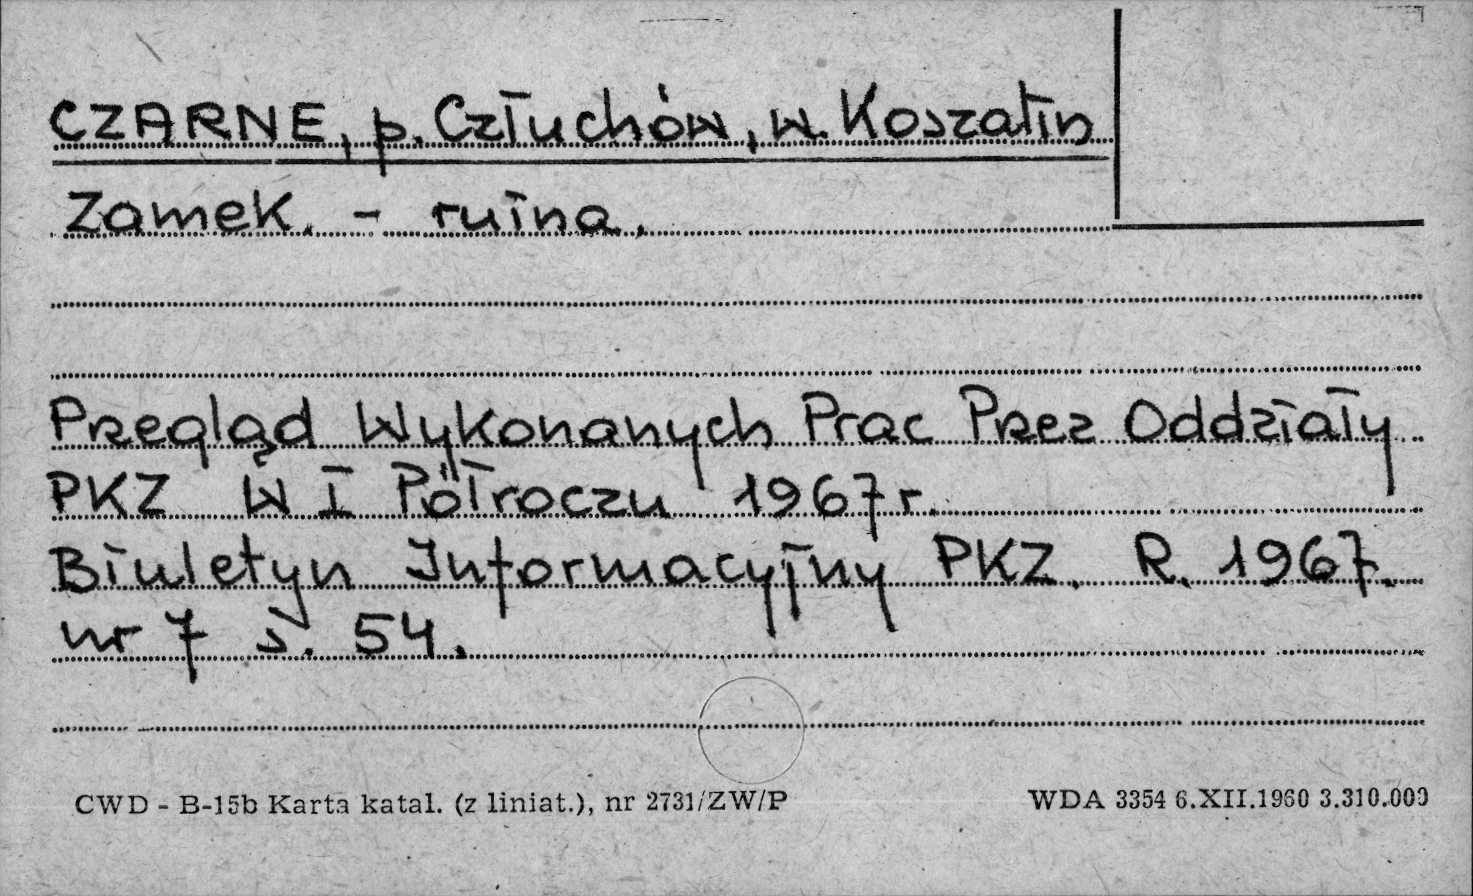 CZARNE, p. Człuchów, w. Koszalin
Zamek. - ruina.
Przegląd Wykonanych Prac Przez Oddziały
PKZ W I Półroczu 1967 r.
Biuletyn Informacyjny PKZ. R. 1967.
nr 7 s. 54.
CWD - B-15b Karta katal. (z liniat.), nr 2731/ZW/P
WDA 3354 6.XII.1960 3.310.000